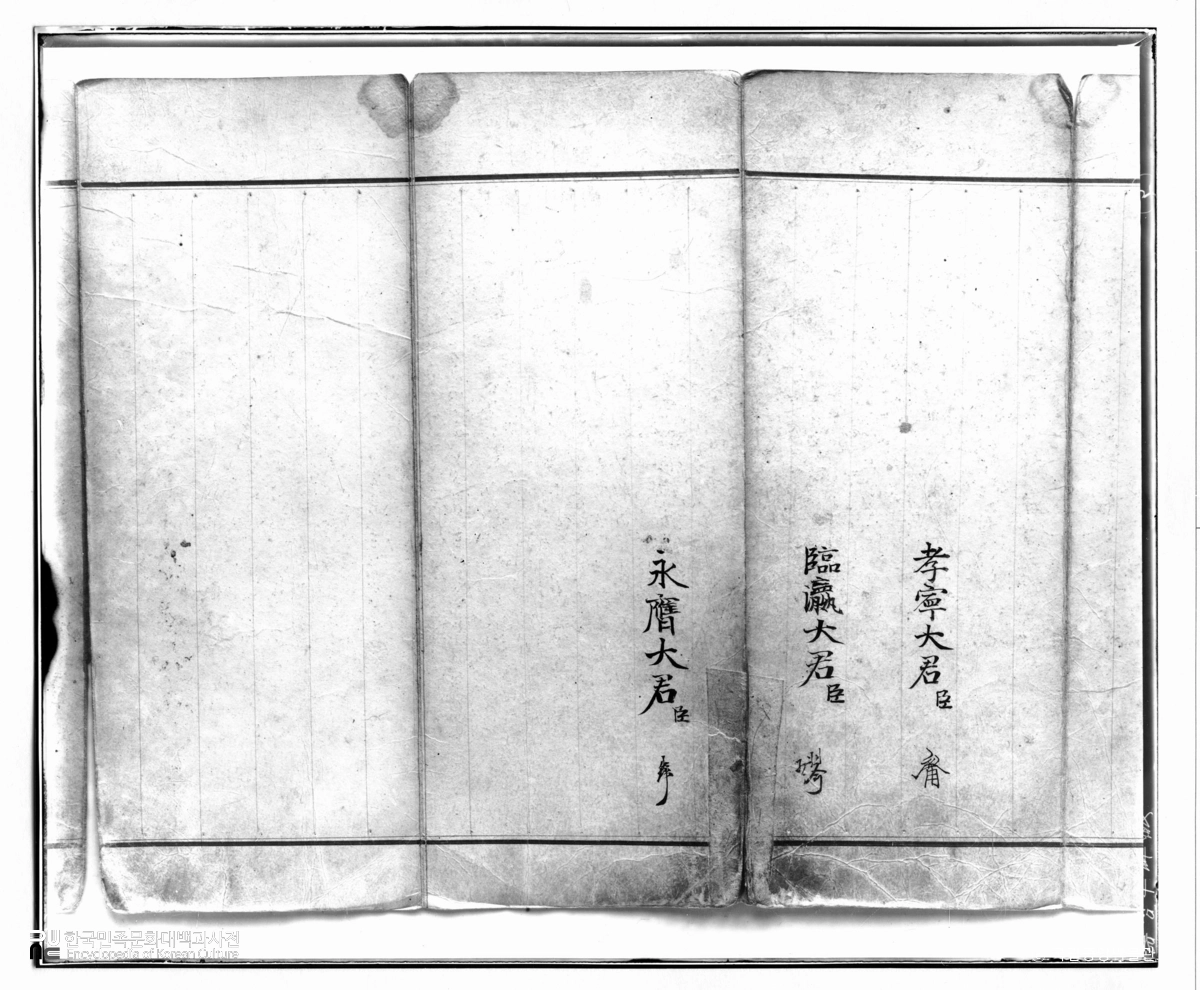 孝寧大君臣
臨瀛大君臣 璆
永膺大君臣
한국민족문화대백과사전
Encyclopedia of Korean Culture